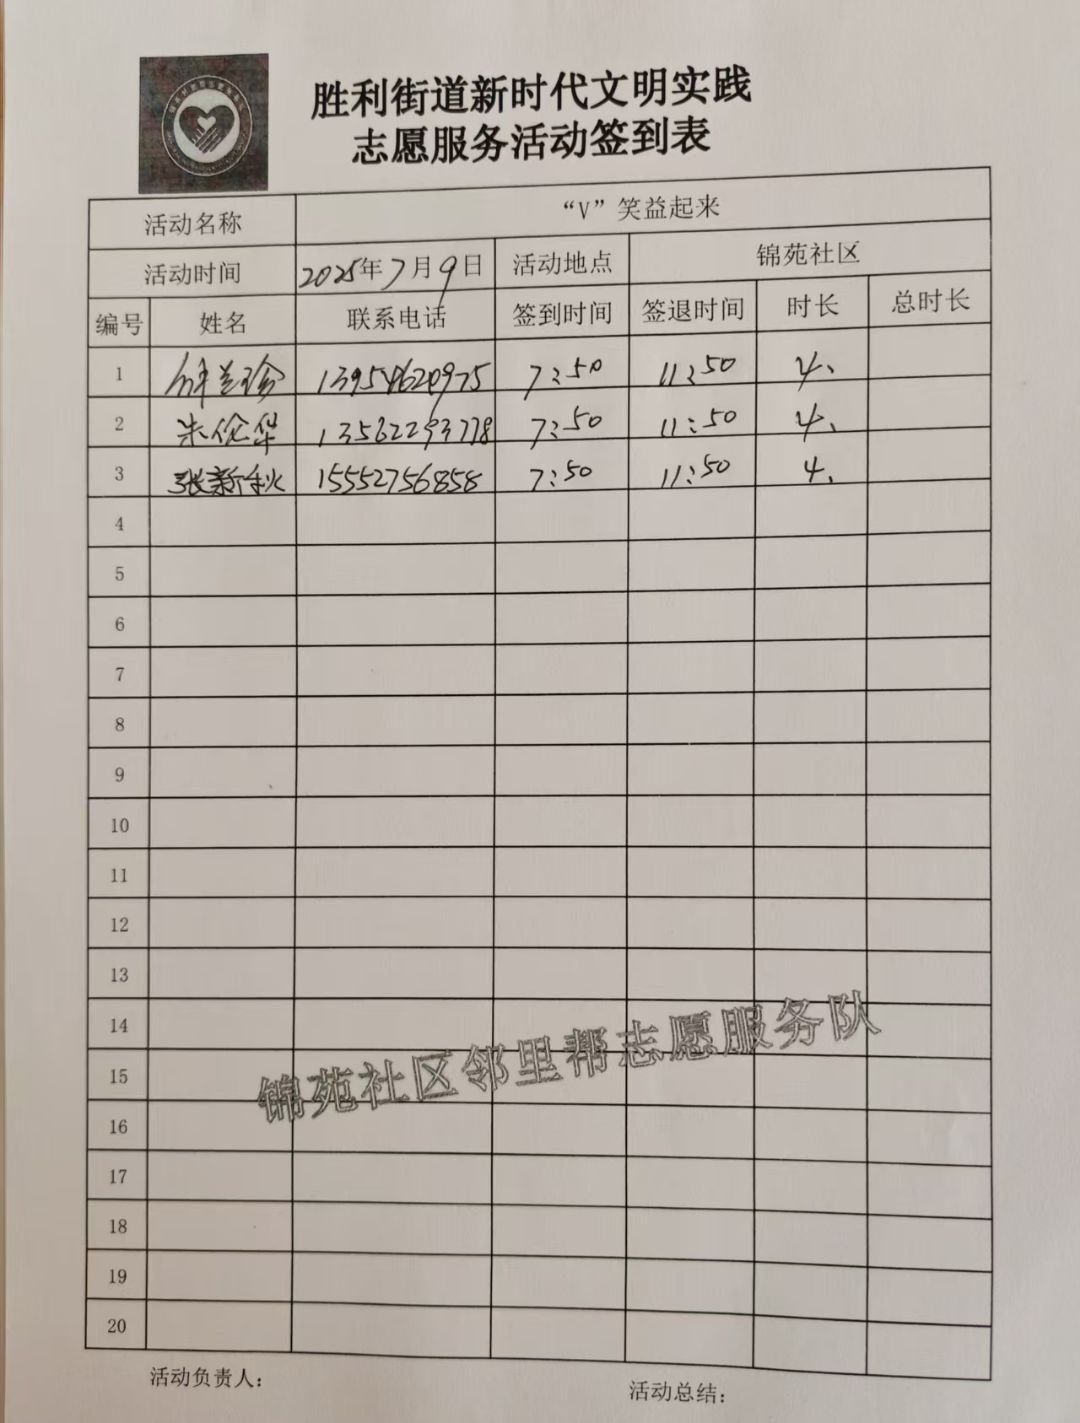 胜利街道新时代文明实践
志愿服务活动签到表
活动名称 “V”笑益起来
活动时间 2025年7月9日 活动地点 锦苑社区
编号 姓名 联系电话 签到时间 签退时间 时长 总时长
1 钟兰珍 13954620975 7:50 11:50 4、
2 朱伦华 13562293778 7:50 11:50 4、
3 张新秋 15552756858 7:50 11:50 4、
4
5
6
7
8
9
10
11
12
13
14
15
16
17
18
19
20
锦苑社区邻里帮志愿服务队
活动负责人：
活动总结：